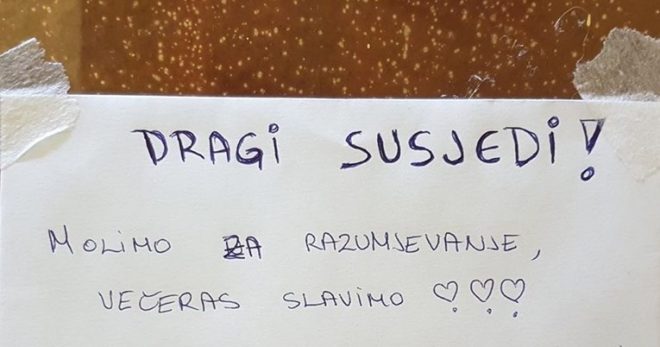 DRAGI SUSJEDI!
MOLIMO ZA RAZUMJEVANJE,
VEČERAS SLAVIMO ♡♡♡